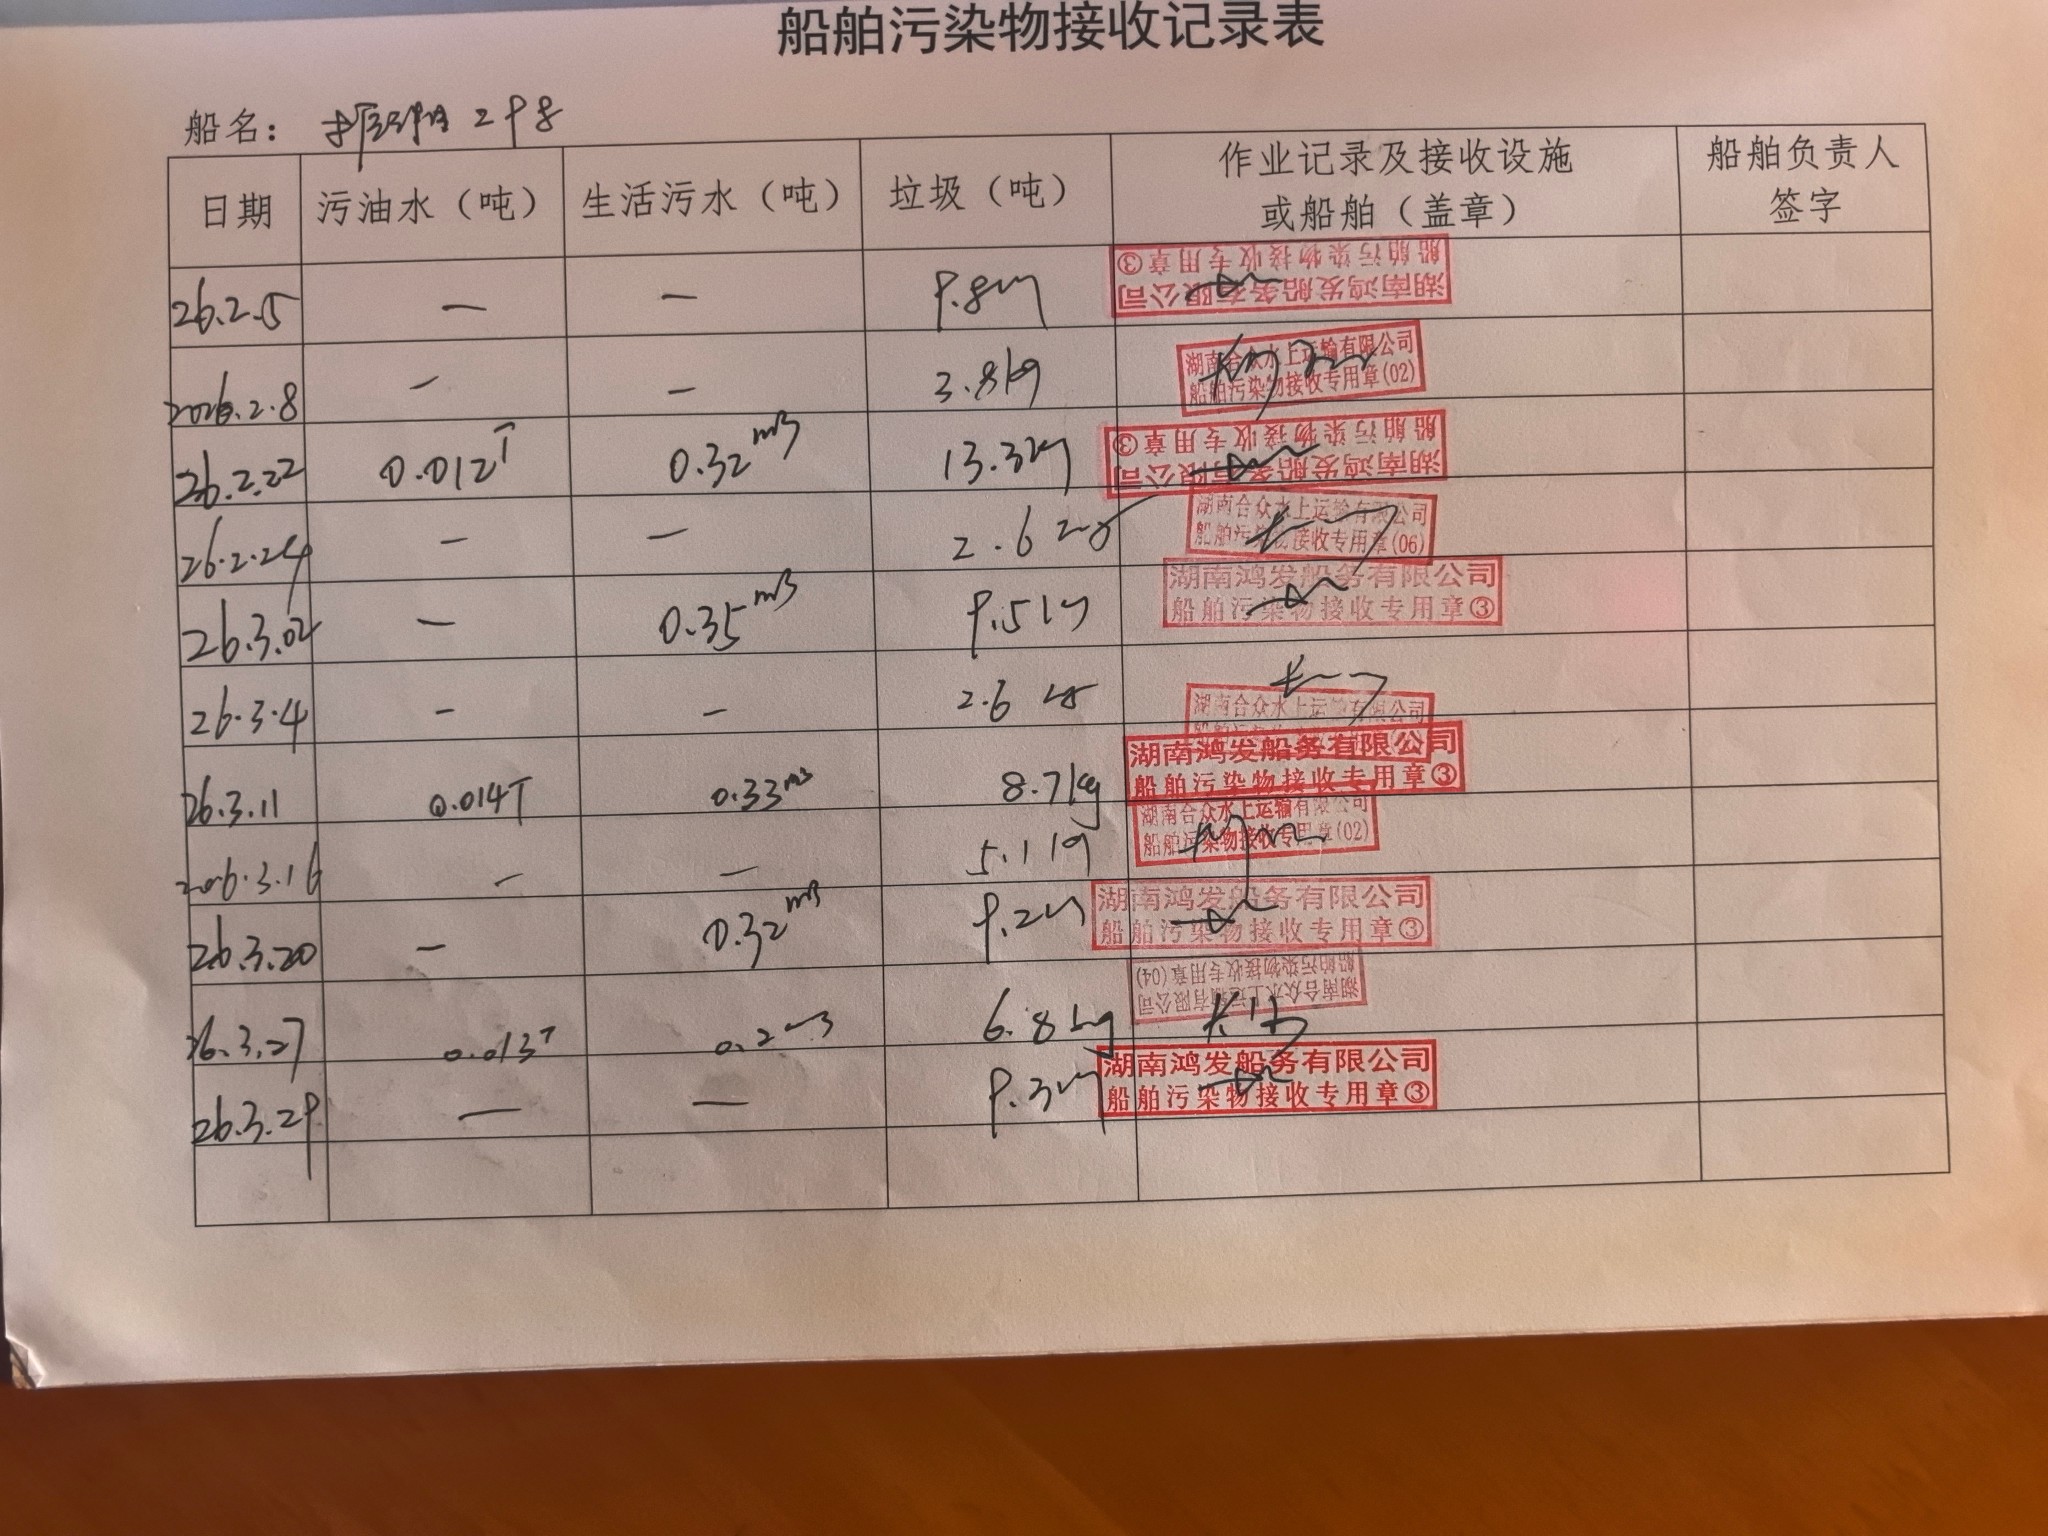 船舶污染物接收记录表
船名：
日期 污油水（吨） 生活污水（吨） 垃圾（吨） 作业记录及接收设施或船舶（盖章） 船舶负责人签字
26.2.5 — — 9.8kg 湖南鸿发船务有限公司 船舶污染物接收专用章③
2026.2.8 — — 3.8kg 湖南合众水上运输有限公司 船舶污染物接收专用章(02)
26.2.22 0.012T 0.32m3 13.3kg 湖南鸿发船务有限公司 船舶污染物接收专用章③
26.2.24 — — 2.6kg 湖南合众水上运输有限公司 船舶污染物接收专用章(06)
26.3.02 — 0.35m3 9.5kg 湖南鸿发船务有限公司 船舶污染物接收专用章③
26.3.4 — — 2.6kg 湖南合众水上运输有限公司
26.3.11 0.014T 0.33m3 8.7kg 湖南鸿发船务有限公司 船舶污染物接收专用章③
2026.3.16 — — 5.1kg 湖南合众水上运输有限公司 船舶污染物接收专用章(02)
26.3.20 — 0.32m3 9.2kg 湖南鸿发船务有限公司 船舶污染物接收专用章③
26.3.27 0.013T 0.2m3 6.8kg 湖南合众水上运输有限公司 船舶污染物接收专用章(04)
26.3.29 — — 9.3kg 湖南鸿发船务有限公司 船舶污染物接收专用章③